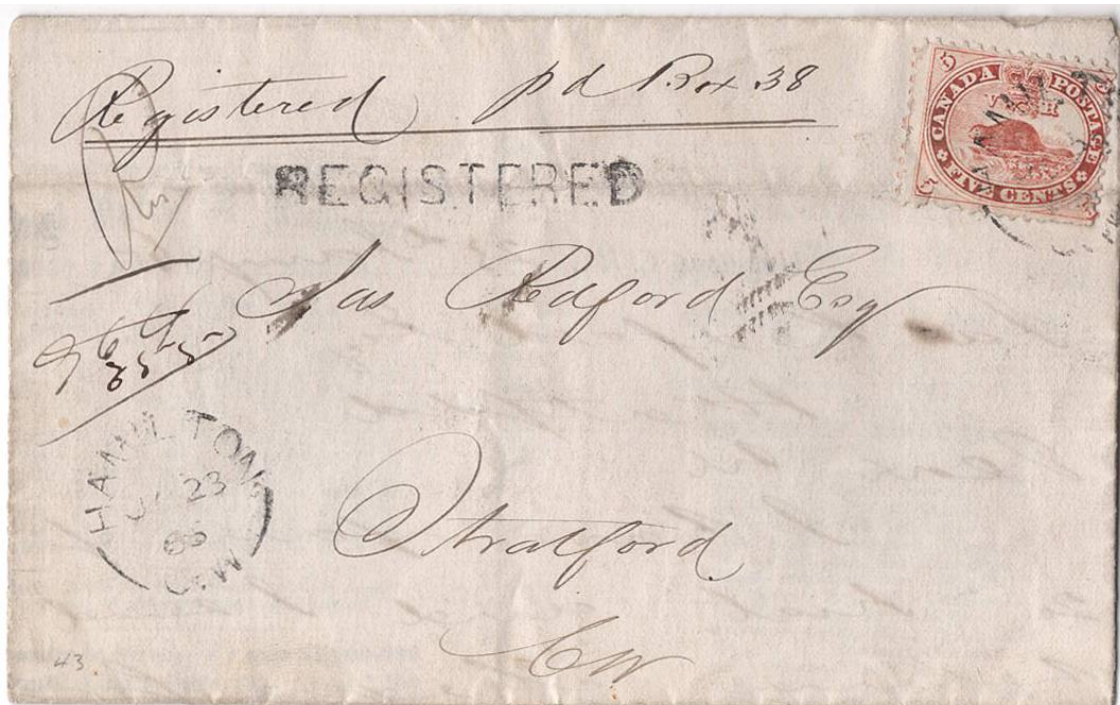 Registered pd Box 38
REGISTERED
5 CANADA POSTAGE 5
5 FIVE CENTS 5
Jas Redford Esq
HAMILTON
23
C.W.
Stratford
CW
43